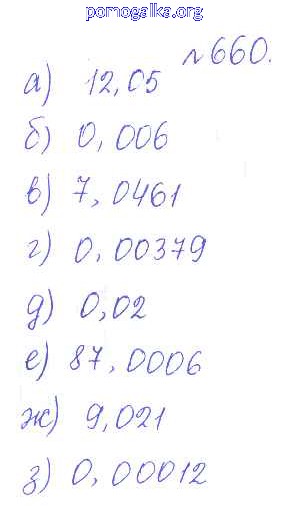 pomogalka.org
№660.
а) 12,05
б) 0,006
в) 7,0461
г) 0,00379
д) 0,02
е) 87,0006
ж) 9,021
з) 0,00012